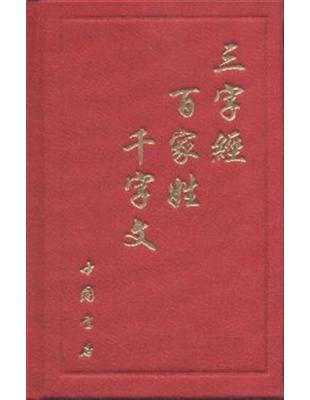 三字經
百家姓
千字文
中国书店